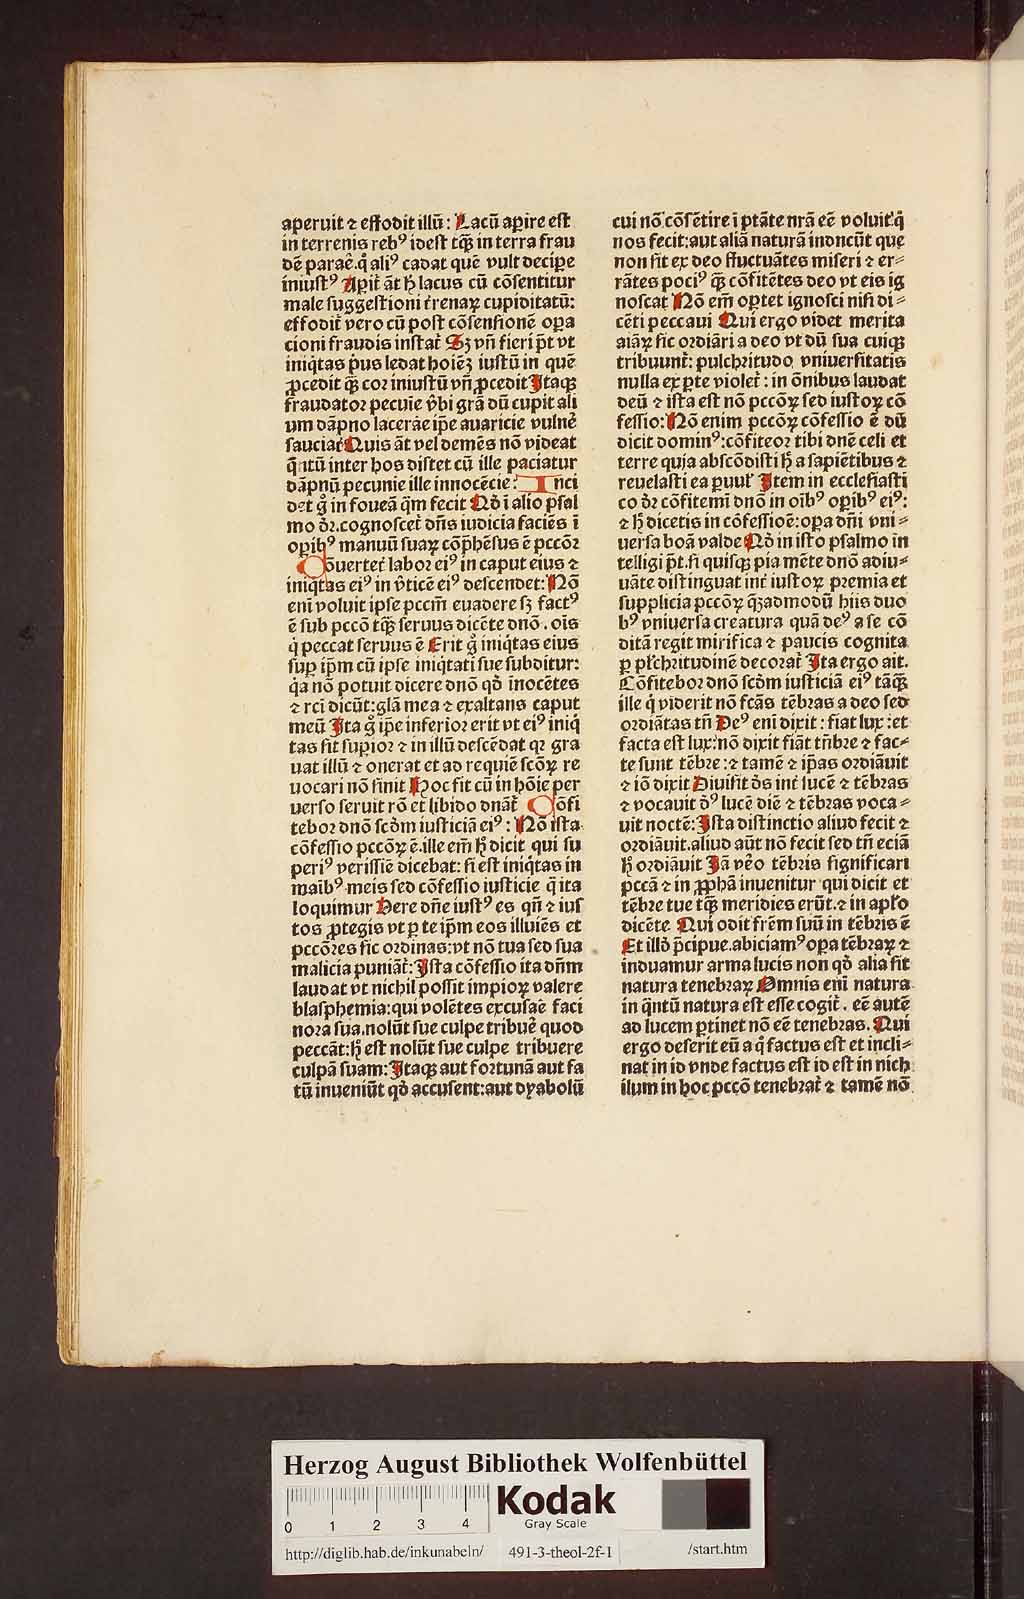 aperuit ⁊ effodit illū: Lacū apire est
in terrenis rebꝰ idest tq̄ꝫ in terra frau
dē paraē.q̄ aliꝰ cadat quē vult decipe
iniustꝰ Apit̄ āt h̄ lacus cū cōsentitur
male suggestioni t̄renaꝝ cupiditatū:
effodit̄ vero cū post cōsensionē opa
cioni fraudis instat̄ Sꝫ vn̄ fieri p̄t vt
iniq̄tas p̄us ledat hoieꝫ iustū in quē
ꝓcedit q̄ꝫ cor iniustū vn̄ ꝓcedit Itaqꝫ
fraudator pecuīe v̄bi grā dū cupit ali
um dāpno lacerāe ip̄e avaricie vulnē
sauciat̄ Quis āt vel demēs nō videat
q̄ntū inter hos distet cū ille paciatur
dāpnū pecunie ille innocēcie: Inci
det g̊ in foueā q̄m fecit Qd̄ ī alio psal
mo dr̄.cognoscet̄ dn̄s iudicia faciēs ī
opibꝰ manuū suaꝝ cōp̄hēsus ē pccōr
Cōuertet̄ labor eiꝰ in caput eius ⁊
iniq̄tas eiꝰ in v̄ticē eiꝰ descendet: Nō
eni voluit ipse pccm̄ euadere sꝫ factꝰ
ē sub pccō tq̄ꝫ seruus dicēte dnō. oīs
q̇ peccat seruus ē Erit g̊ iniq̄tas eius
sup ip̄m cū ipse iniq̄tati sue subditur:
q̇a nō potuit dicere dnō qd̄ īnocētes
⁊ rci dicūt:glā mea ⁊ exaltans caput
meū Ita g̊ ip̄e inferior erit vt eiꝰ iniq̇
tas sit supior ⁊ in illū descēdat qꝛ gra
uat illū ⁊ onerat et ad requiē scōꝝ re
uocari nō sinit Hoc fit cū in hōie per
uerso seruit rō et libido dnāt̄ Cōfi
tebor dnō scd̄m iusticiā eiꝰ: Nō ista
cōfessio pccōꝝ ē.ille em̄ h̄ dicit qui su
periꝰ verissīe dicebat: si est iniq̄tas in
maībꝰ meis sed cōfessio iusticie q̄ ita
loquimur Vere dn̄e iustꝰ es qn̄ ⁊ ius
tos ꝓtegis vt p te ip̄m eos illuīes et
pccōres sic ordinas:vt nō tua sed sua
malicia puniāt̄: Ista cōfessio ita dn̄m
laudat vt nichil possit impioꝝ valere
blasphemia:qui volētes excusaē faci
nora sua.nolūt sue culpe tribuē quod
peccāt:h̄ est nolūt sue culpe tribuere
culpā suam: Itaqꝫ aut fortunā aut fa
tū inueniūt qd̄ accusent:aut dyabolū
cui nō cōsētire ī ptāte nrā eē voluit q̇
nos fecit:aut aliā naturā indncūt que
non sit ex deo ffuctuātes miseri ⁊ er⸗
rātes pociꝰ q̄ꝫ cōfitētes deo vt eis ig
noscat Nō em̄ optet ignosci nisi di⸗
cēti peccaui Qui ergo videt merita
aīaꝝ sic ordiāri a deo vt dū sua cuiqꝫ
tribuunt̄: pulchritudo vniuersitatis
nulla ex pte violet̄ : in ōnibus laudat
deū ⁊ ista est nō pccōꝝ sed iustoꝝ cō
fessio: Nō enim pccōꝝ cōfessio ē dū
dicit dominꝰ:cōfiteor tibi dnē celi et
terre quia abscōdisti h̄ a sapiētibus ⁊
reuelasti ea puul̄ Item in ecclesiasti
co dr̄ cōfitemī dnō in oībꝰ opibꝰ eiꝰ:
⁊ h̄ dicetis in cōfessiōe:opa dn̄i vni⸗
uersa boā valde Qd̄ in isto psalmo in
telligi p̄t.si quisqꝫ pia mēte dnō adiu⸗
uāte distinguat int̄ iustoꝝ premia et
supplicia pccōꝝ q̄ꝫadmodū hiis duo
bꝰ vniuersa creatura quā deꝰ a se cō
ditā regit mirifica ⁊ paucis cognita
p pl̄chritudinē decorat̄ Ita ergo ait.
Cōfitebor dnō scd̄m iusticiā eiꝰ tāq̄ꝫ
ille q̇ viderit nō fcās tēbras a deo sed
ordiātas tn̄ Deꝰ eni dixit : fiat lux : et
facta est lux:nō dixit fiāt tn̄bre ⁊ fac⸗
te sunt tēbre:⁊ tamē ⁊ ip̄as ordiāuit
⁊ iō dixit Diuisit ds̄ int̄ lucē ⁊ tēbras
⁊ vocauit dꝰ lucē diē ⁊ tēbras voca⸗
uit noctē: Ista distinctio aliud fecit ⁊
ordiāuit.aliud aūt nō fecit sed tn̄ eciā
h̄ ordiāuit Iā vēo tēbris significari
pccā ⁊ in ꝓphā inuenitur qui dicit et
tēbre tue tq̄ꝫ meridies erūt.⁊ in apl̄o
dicēte Qui odit frēm suū in tēbris ē
Et illd̄ p̄cipue.abiciamꝰ opa tēbraꝝ ⁊
induamur arma lucis non qd̄ alia sit
natura tenebraꝝ Omnis eni natura
in q̄ntū natura est esse cogit̄. eē autē
ad lucem ptinet nō eē tenebras. Qui
ergo deserit eū a q̇ factus est et incli⸗
nat in id vnde factus est id est in nich
ilum in hoc pccō tenebrat̄ ⁊ tamē nō
Herzog August Bibliothek Wolfenbüttel
0 1 2 3 4
Kodak
Gray Scale
http://diglib.hab.de/inkunabeln/ 491-3-theol-2f-1 /start.htm